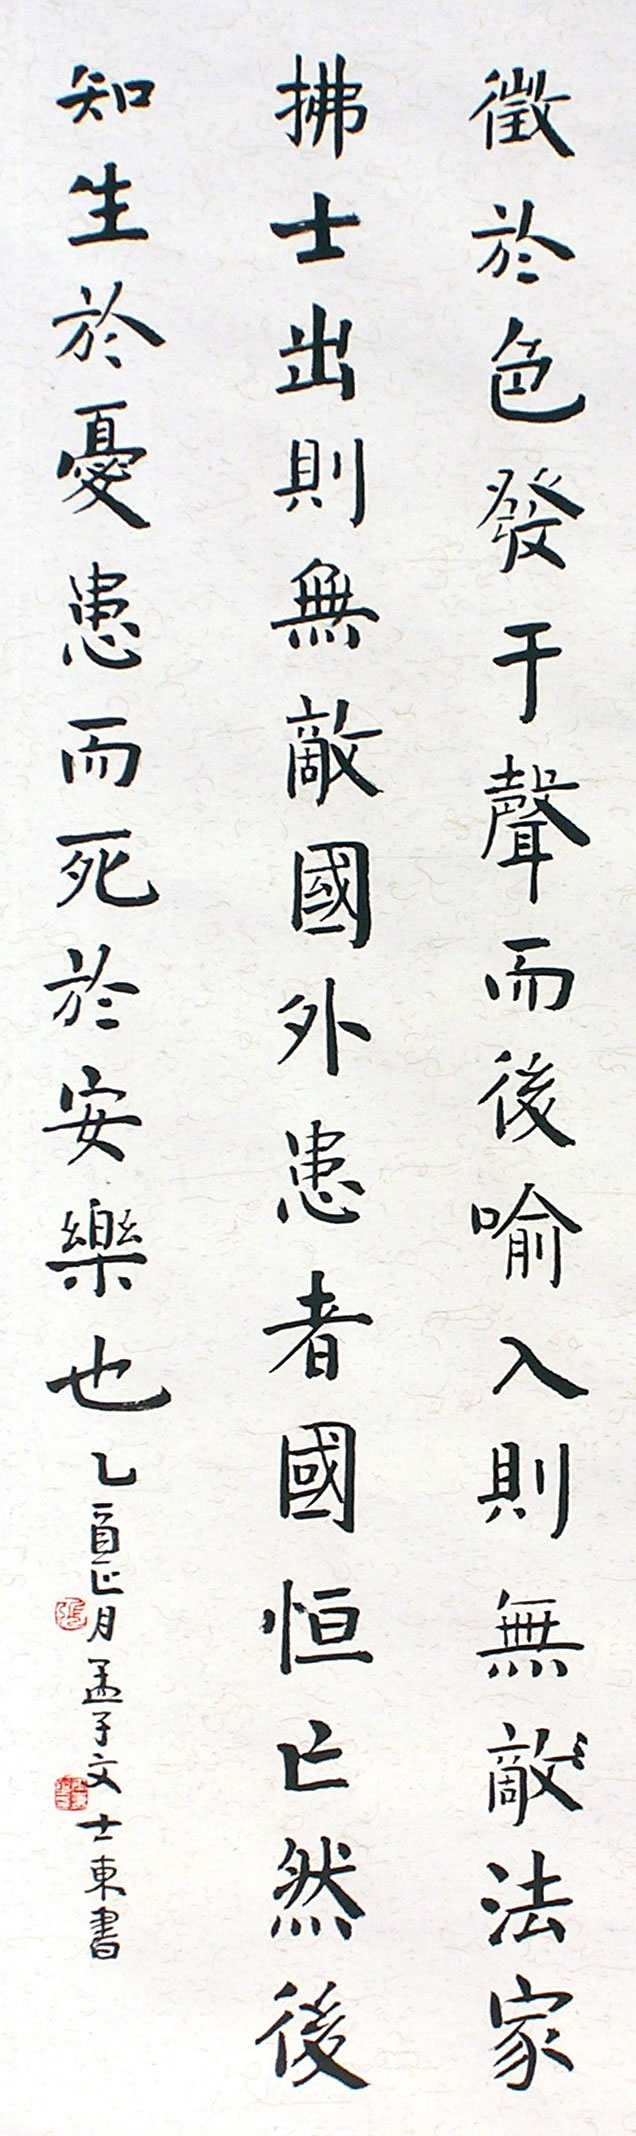 徵於色發于聲而後喻入則無敵法家
拂士出則無敵國外患者國恒亡然後
知生於憂患而死於安樂也
乙酉正月孟子文士東書